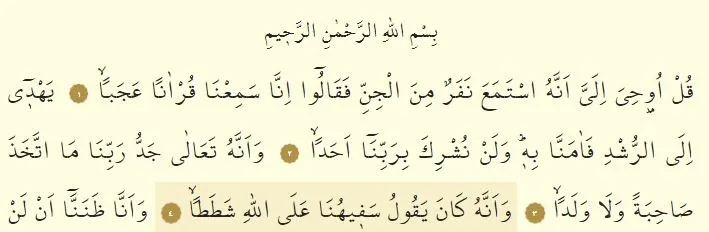 بِسْمِ اللهِ الرَّحْمٰنِ الرَّحٖيمِ
قُلْ اُو۫حِيَ اِلَيَّ اَنَّهُ اسْتَمَعَ نَفَرٌ مِنَ الْجِنِّ فَقَالُٓوا اِنَّا سَمِعْنَا قُرْاٰنًا عَجَبًاۙ ١ يَهْدٖٓي
اِلَى الرُّشْدِ فَاٰمَنَّا بِهٖۜ وَلَنْ نُشْرِكَ بِرَبِّنَٓا اَحَدًاۙ ٢ وَاَنَّهُ تَعَالٰى جَدُّ رَبِّنَا مَا اتَّخَذَ
صَاحِبَةً وَلَا وَلَدًاۙ ٣ وَاَنَّهُ كَانَ يَقُولُ سَفٖيهُنَا عَلَى اللهِ شَطَطًاۙ ٤ وَاَنَّا ظَنَنَّٓا اَنْ لَنْ